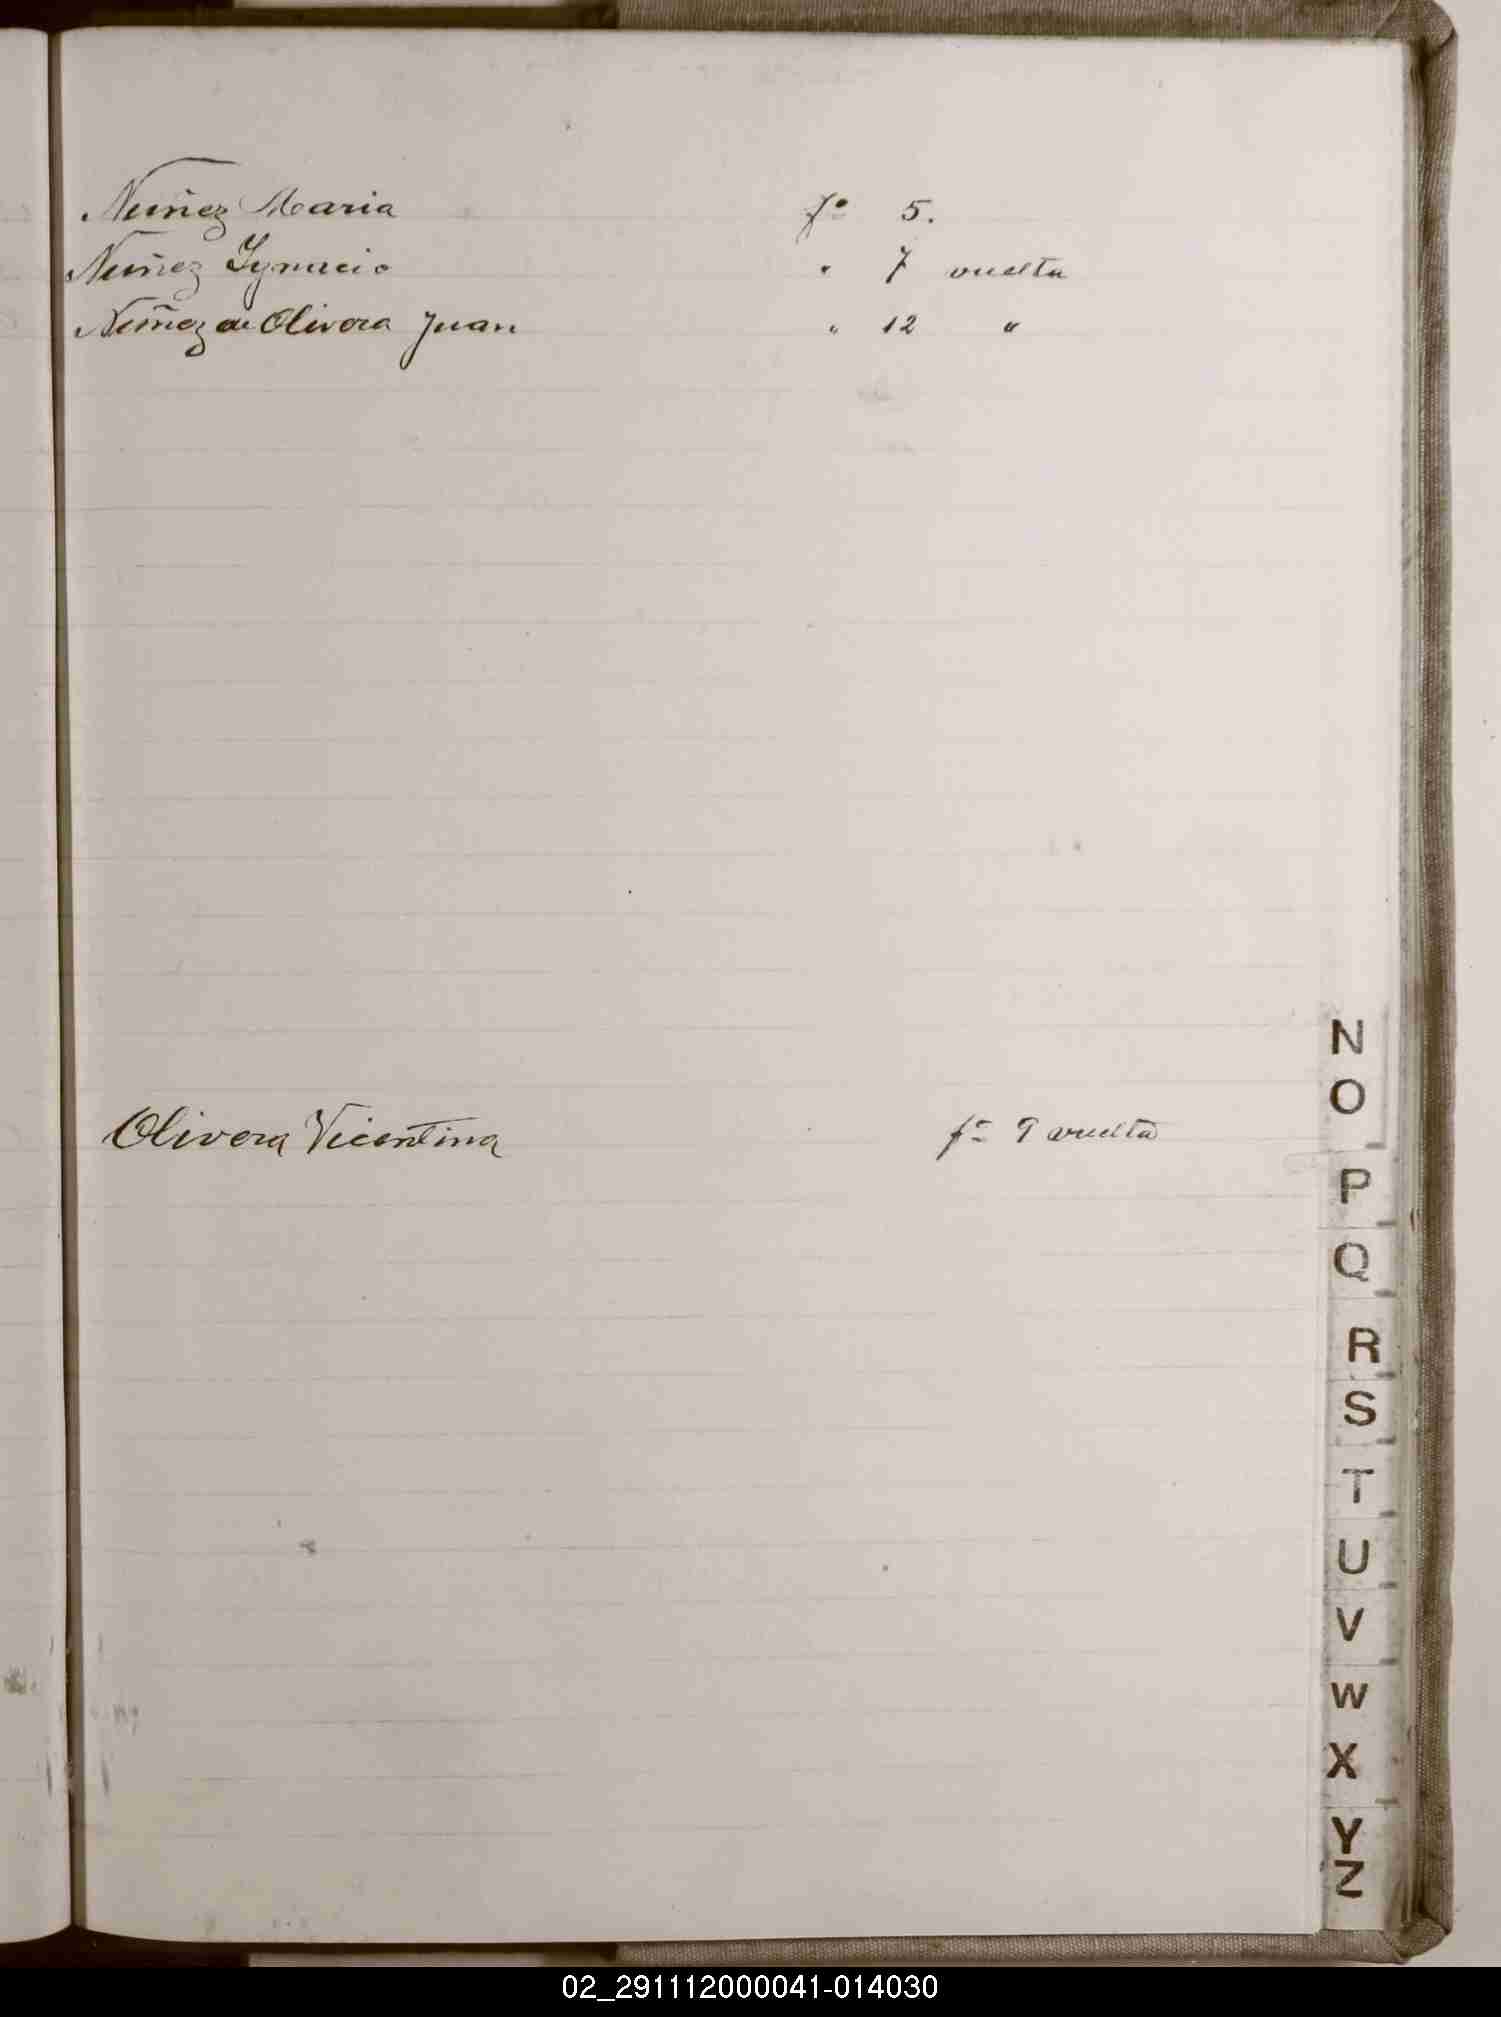 Nuñez Maria fº 5.
Nuñez Ygnacio " 7 vuelta
Nuñez de Olivera Juan " 12 "
Olivera Vicentina fº 9 vuelta
N
O
P
Q
R
S
T
U
V
W
X
Y
Z
02_291112000041-014030